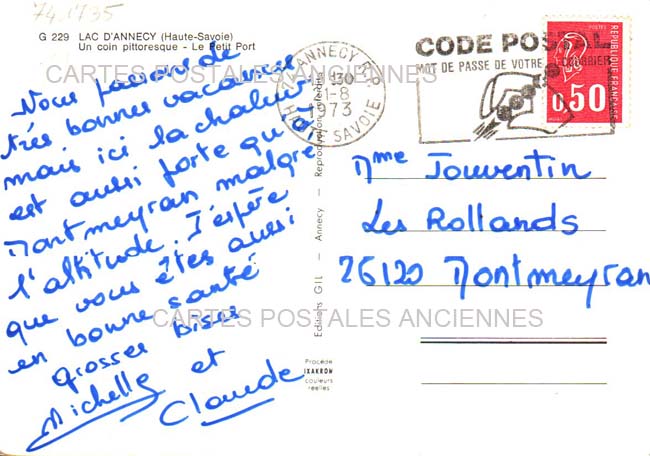 74.1735
G 229 LAC D'ANNECY (Haute-Savoie)
Un coin pittoresque - Le Petit Port
Nous passons de
très bonnes vacances
mais ici la chaleur
est aussi forte qu'à
Montmeyran malgré
l'altitude. J'espère
que vous êtes aussi
en bonne santé
grosses bises
Michelle et
Claude
Editions GIL - Annecy - Reproduction interdite
Procédé
IXAKROM
couleurs
réelles
ANNECY R.P.
1-8
1973
HTE SAVOIE
CODE POSTAL
MOT DE PASSE DE VOTRE COURRIER
POSTES
REPUBLIQUE FRANÇAISE
0,50
Mme Jouventin
Les Rollands
26120 Montmeyran
CARTES POSTALES ANCIENNES
CARTES POSTALES ANCIENNES